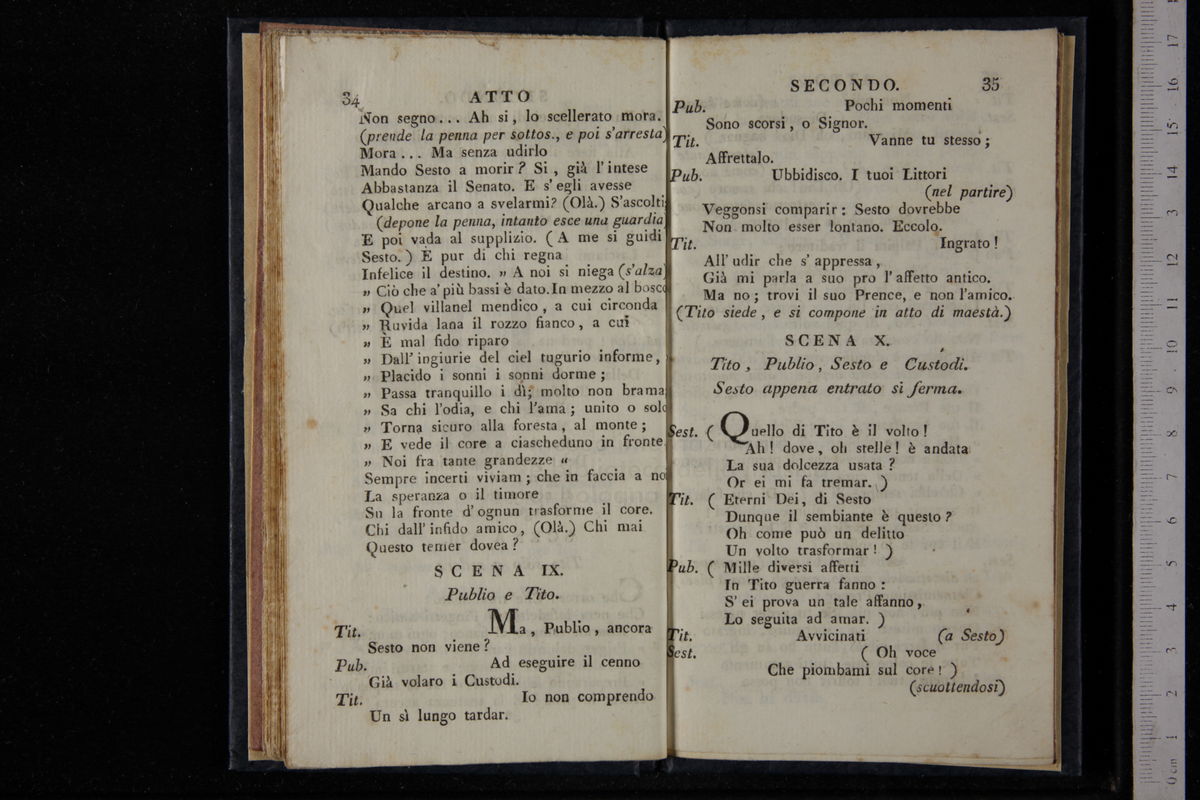 34 ATTO
Non segno... Ah si, lo scellerato mora.
(prende la penna per sottos., e poi s'arresta)
Mora... Ma senza udirlo
Mando Sesto a morir? Si, già l'intese
Abbastanza il Senato. E s'egli avesse
Qualche arcano a svelarmi? (Olà.) S'ascolti;
(depone la penna, intanto esce una guardia
E poi vada al supplizio. (A me si guidi
Sesto.) È pur di chi regna
Infelice il destino. » A noi si niega (s'alza)
» Ciò che a' più bassi è dato. In mezzo al bosco
» Quel villanel mendico, a cui circonda
» Ruvida lana il rozzo fianco, a cui
» È mal fido riparo
» Dall' ingiurie del ciel tugurio informe,
» Placido i sonni i sonni dorme;
» Passa tranquillo i dì; molto non brama;
» Sa chi l'odia, e chi l'ama; unito o solo
» Torna sicuro alla foresta, al monte;
» E vede il core a ciascheduno in fronte.
» Noi fra tante grandezze «
Sempre incerti viviam; che in faccia a noi
La speranza o il timore
Su la fronte d'ognun trasforme il core.
Chi dall' infido amico, (Olà.) Chi mai
Questo temer dovea?
SCENA IX.
Publio e Tito.
Tit. Ma, Publio, ancora
Sesto non viene?
Pub. Ad eseguire il cenno
Già volaro i Custodi.
Tit. Io non comprendo
Un sì lungo tardar.
SECONDO. 35
Pub. Pochi momenti
Sono scorsi, o Signor.
Tit. Vanne tu stesso;
Affrettalo.
Pub. Ubbidisco. I tuoi Littori
(nel partire)
Veggonsi comparir: Sesto dovrebbe
Non molto esser lontano. Eccolo.
Tit. Ingrato!
All' udir che s' appressa,
Già mi parla a suo pro l' affetto antico.
Ma no; trovi il suo Prence, e non l'amico.
(Tito siede, e si compone in atto di maestà.)
SCENA X.
Tito, Publio, Sesto e Custodi.
Sesto appena entrato si ferma.
Sest. ( Quello di Tito è il volto!
Ah! dove, oh stelle! è andata
La sua dolcezza usata?
Or ei mi fa tremar. )
Tit. ( Eterni Dei, di Sesto
Dunque il sembiante è questo?
Oh come può un delitto
Un volto trasformar! )
Pub. ( Mille diversi affetti
In Tito guerra fanno:
S' ei prova un tale affanno,
Lo seguita ad amar. )
Tit. Avvicinati (a Sesto)
Sest. ( Oh voce
Che piombami sul core! )
(scuottendosi)
0 cm 1 2 3 4 5 6 7 8 9 10 11 12 13 14 15 16 17